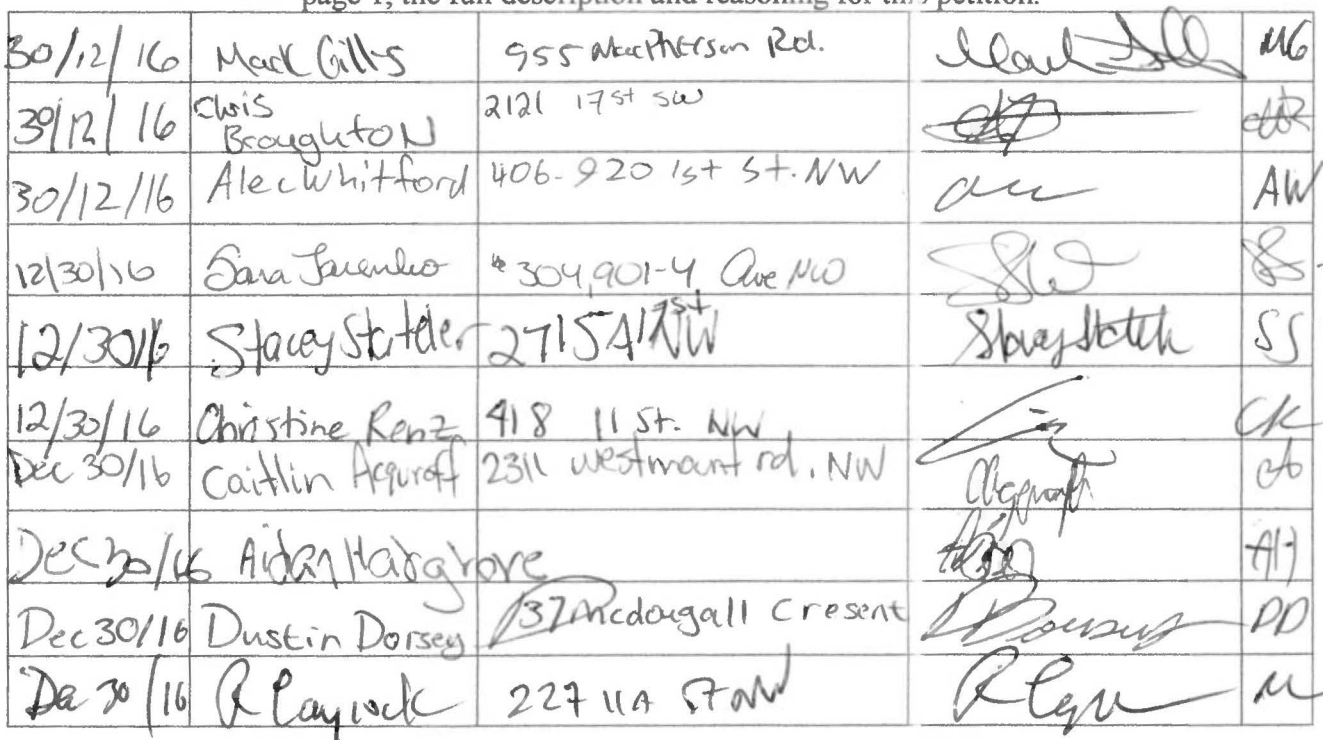 page 1, the full description and reasoning for this petition.
30/12/16 Mark Gillis 955 MacPherson Rd. MG
30/12/16 Chris Broughton 2121 17 st sw
30/12/16 Alec Whitford 406-920 1st St. NW AW
12/30/16 Sara #304, 901-4 Ave NW SS
12/30/16 Stacey Stateler NW SS
12/30/16 Christine Renz 418 11 St. NW CR
Dec 30/16 Caitlin 2311 westmount rd. NW
Dec 30/16 Aidan Hargrove AH
Dec 30/16 Dustin Dorsey 137 Mcdougall Cresent DD
Dec 30/16 R Laycock 227 11A St NW